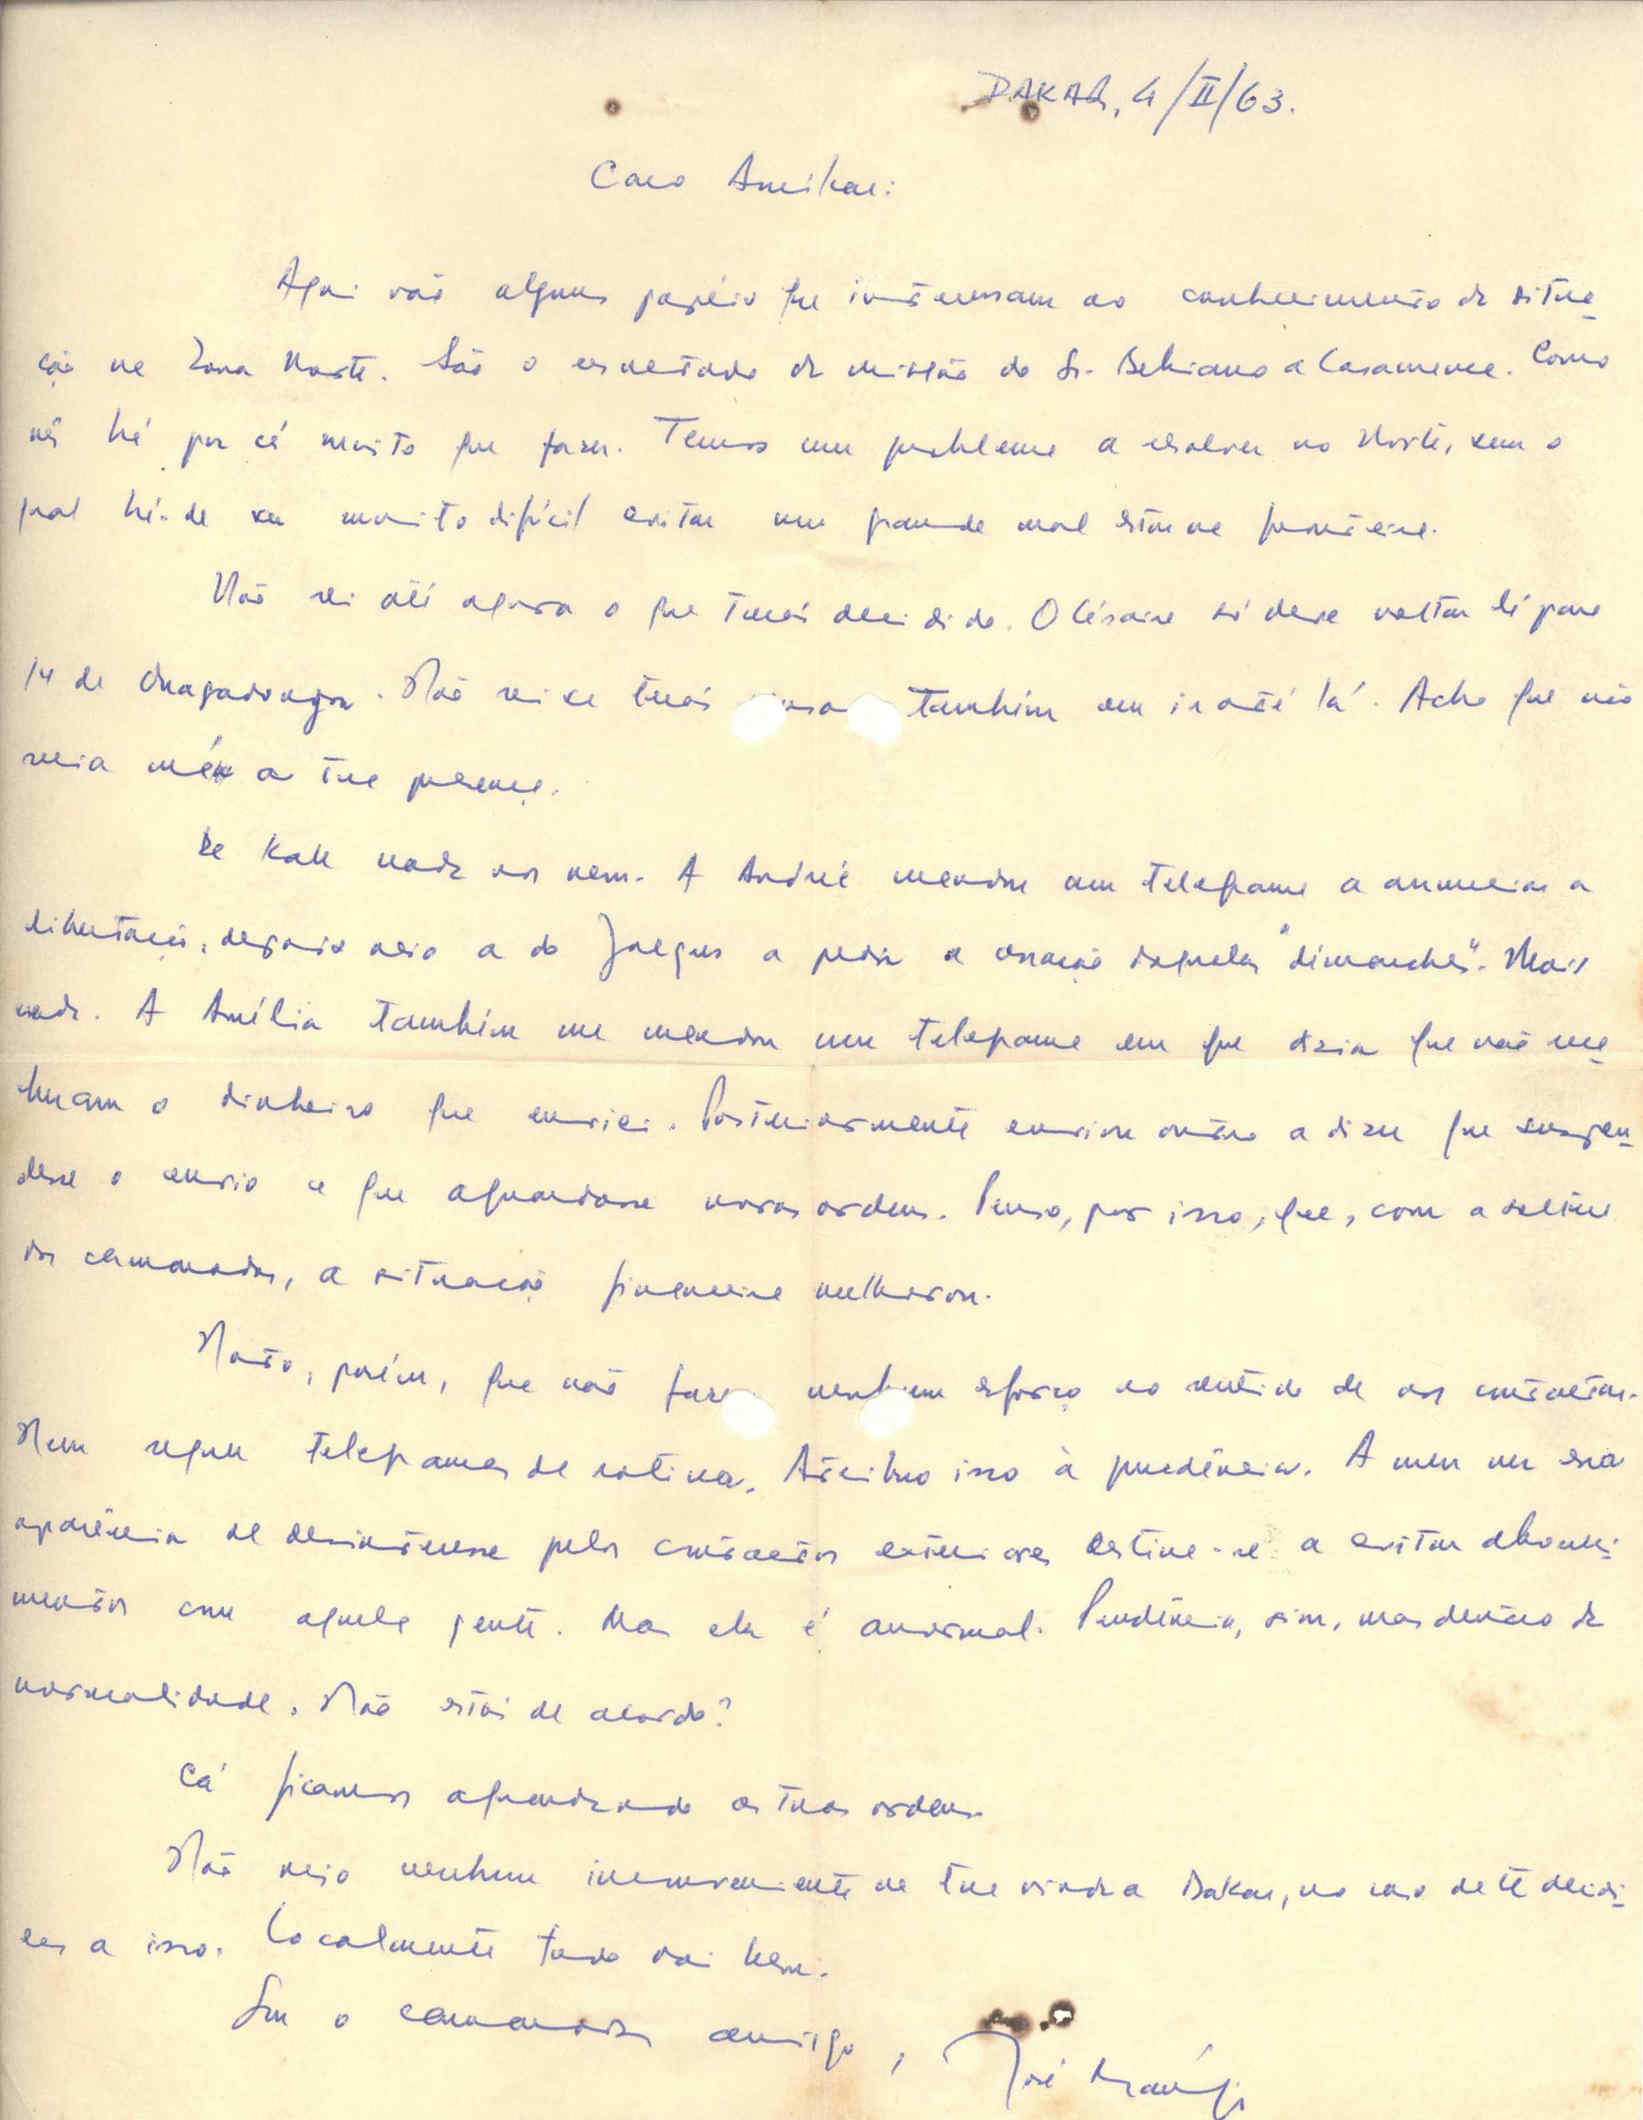 DAKAR, 4/II/63.
Caro Amílcar:
Aqui vão alguns papéis que interessam ao conhecimento da situa-
ção na Zona Norte. São o resultado da missão do Sr. a Casamance. Como
vês há por cá muito que fazer. Temos um problema a resolver no Norte, sem o
qual há-de ser muito difícil evitar um grande mal estar na fronteira.
Não sei até agora o que terás decidido. O Césaire só deve voltar lá para
14 de Ouagadougou. Não sei se terás também em ir até lá. Acho que não
seria má a tua presença.
De Kall nada nos vem. A André mandou um telegrama a anunciar a
libertação, depois veio a do Jacques a pedir a daquelas "dimanches". Mais
nada. A Amélia também me mandou um telegrama em que dizia que não rece-
beram o dinheiro que enviei. Posteriormente enviou outro a dizer que suspen-
desse o envio e que aguardasse novas ordens. Penso, por isso, que, com a saída
dos camaradas, a situação financeira melhorou.
Noto, porém, que não fazem nenhum esforço no sentido de nos contactar.
Nem sequer telegramas de rotina. Atribuo isso à prudência. A meu ver essa
aparência de desinteresse pelos contactos exteriores destina-se a evitar aborreci-
mentos com aquela gente. Mas ela é anormal. Prudência, sim, mas dentro da
normalidade. Não estás de acordo?
Cá ficamos aguardando as tuas ordens.
Não vejo nenhum inconveniente na tua vinda a Dakar, no caso de te decidi-
res a isso. Localmente tudo vai bem.
Sou o camarada amigo,
José Araújo